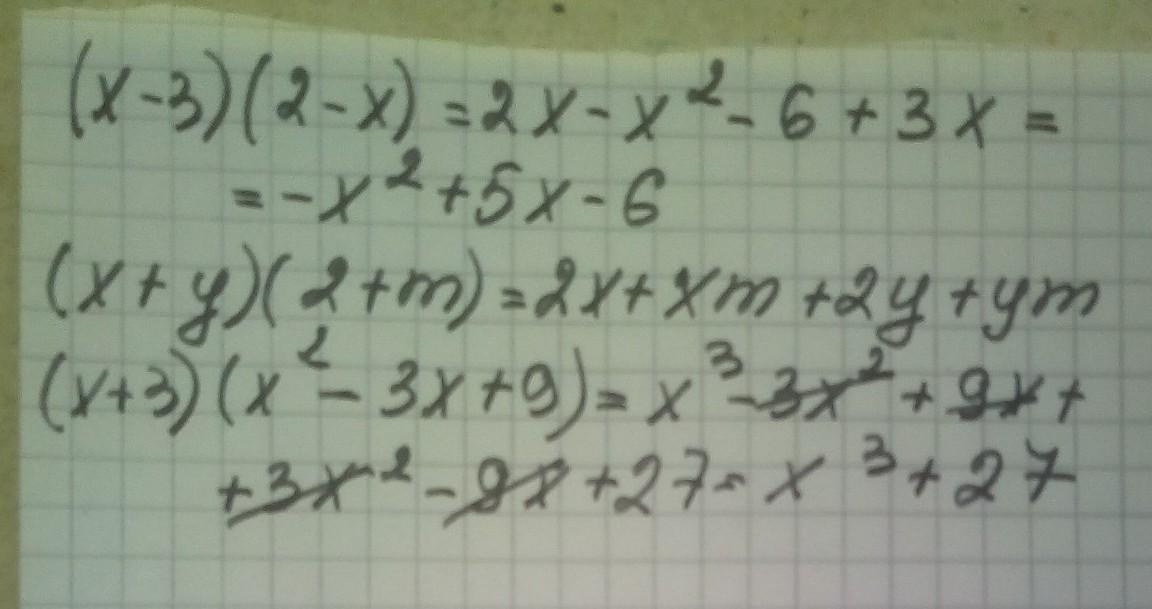 (x-3)(2-x)=2x-x²-6+3x=
=-x²+5x-6
(x+y)(2+m)=2x+xm+2y+ym
(x+3)(x²-3x+9)=x³-3x²+9x+
+3x²-9x+27=x³+27